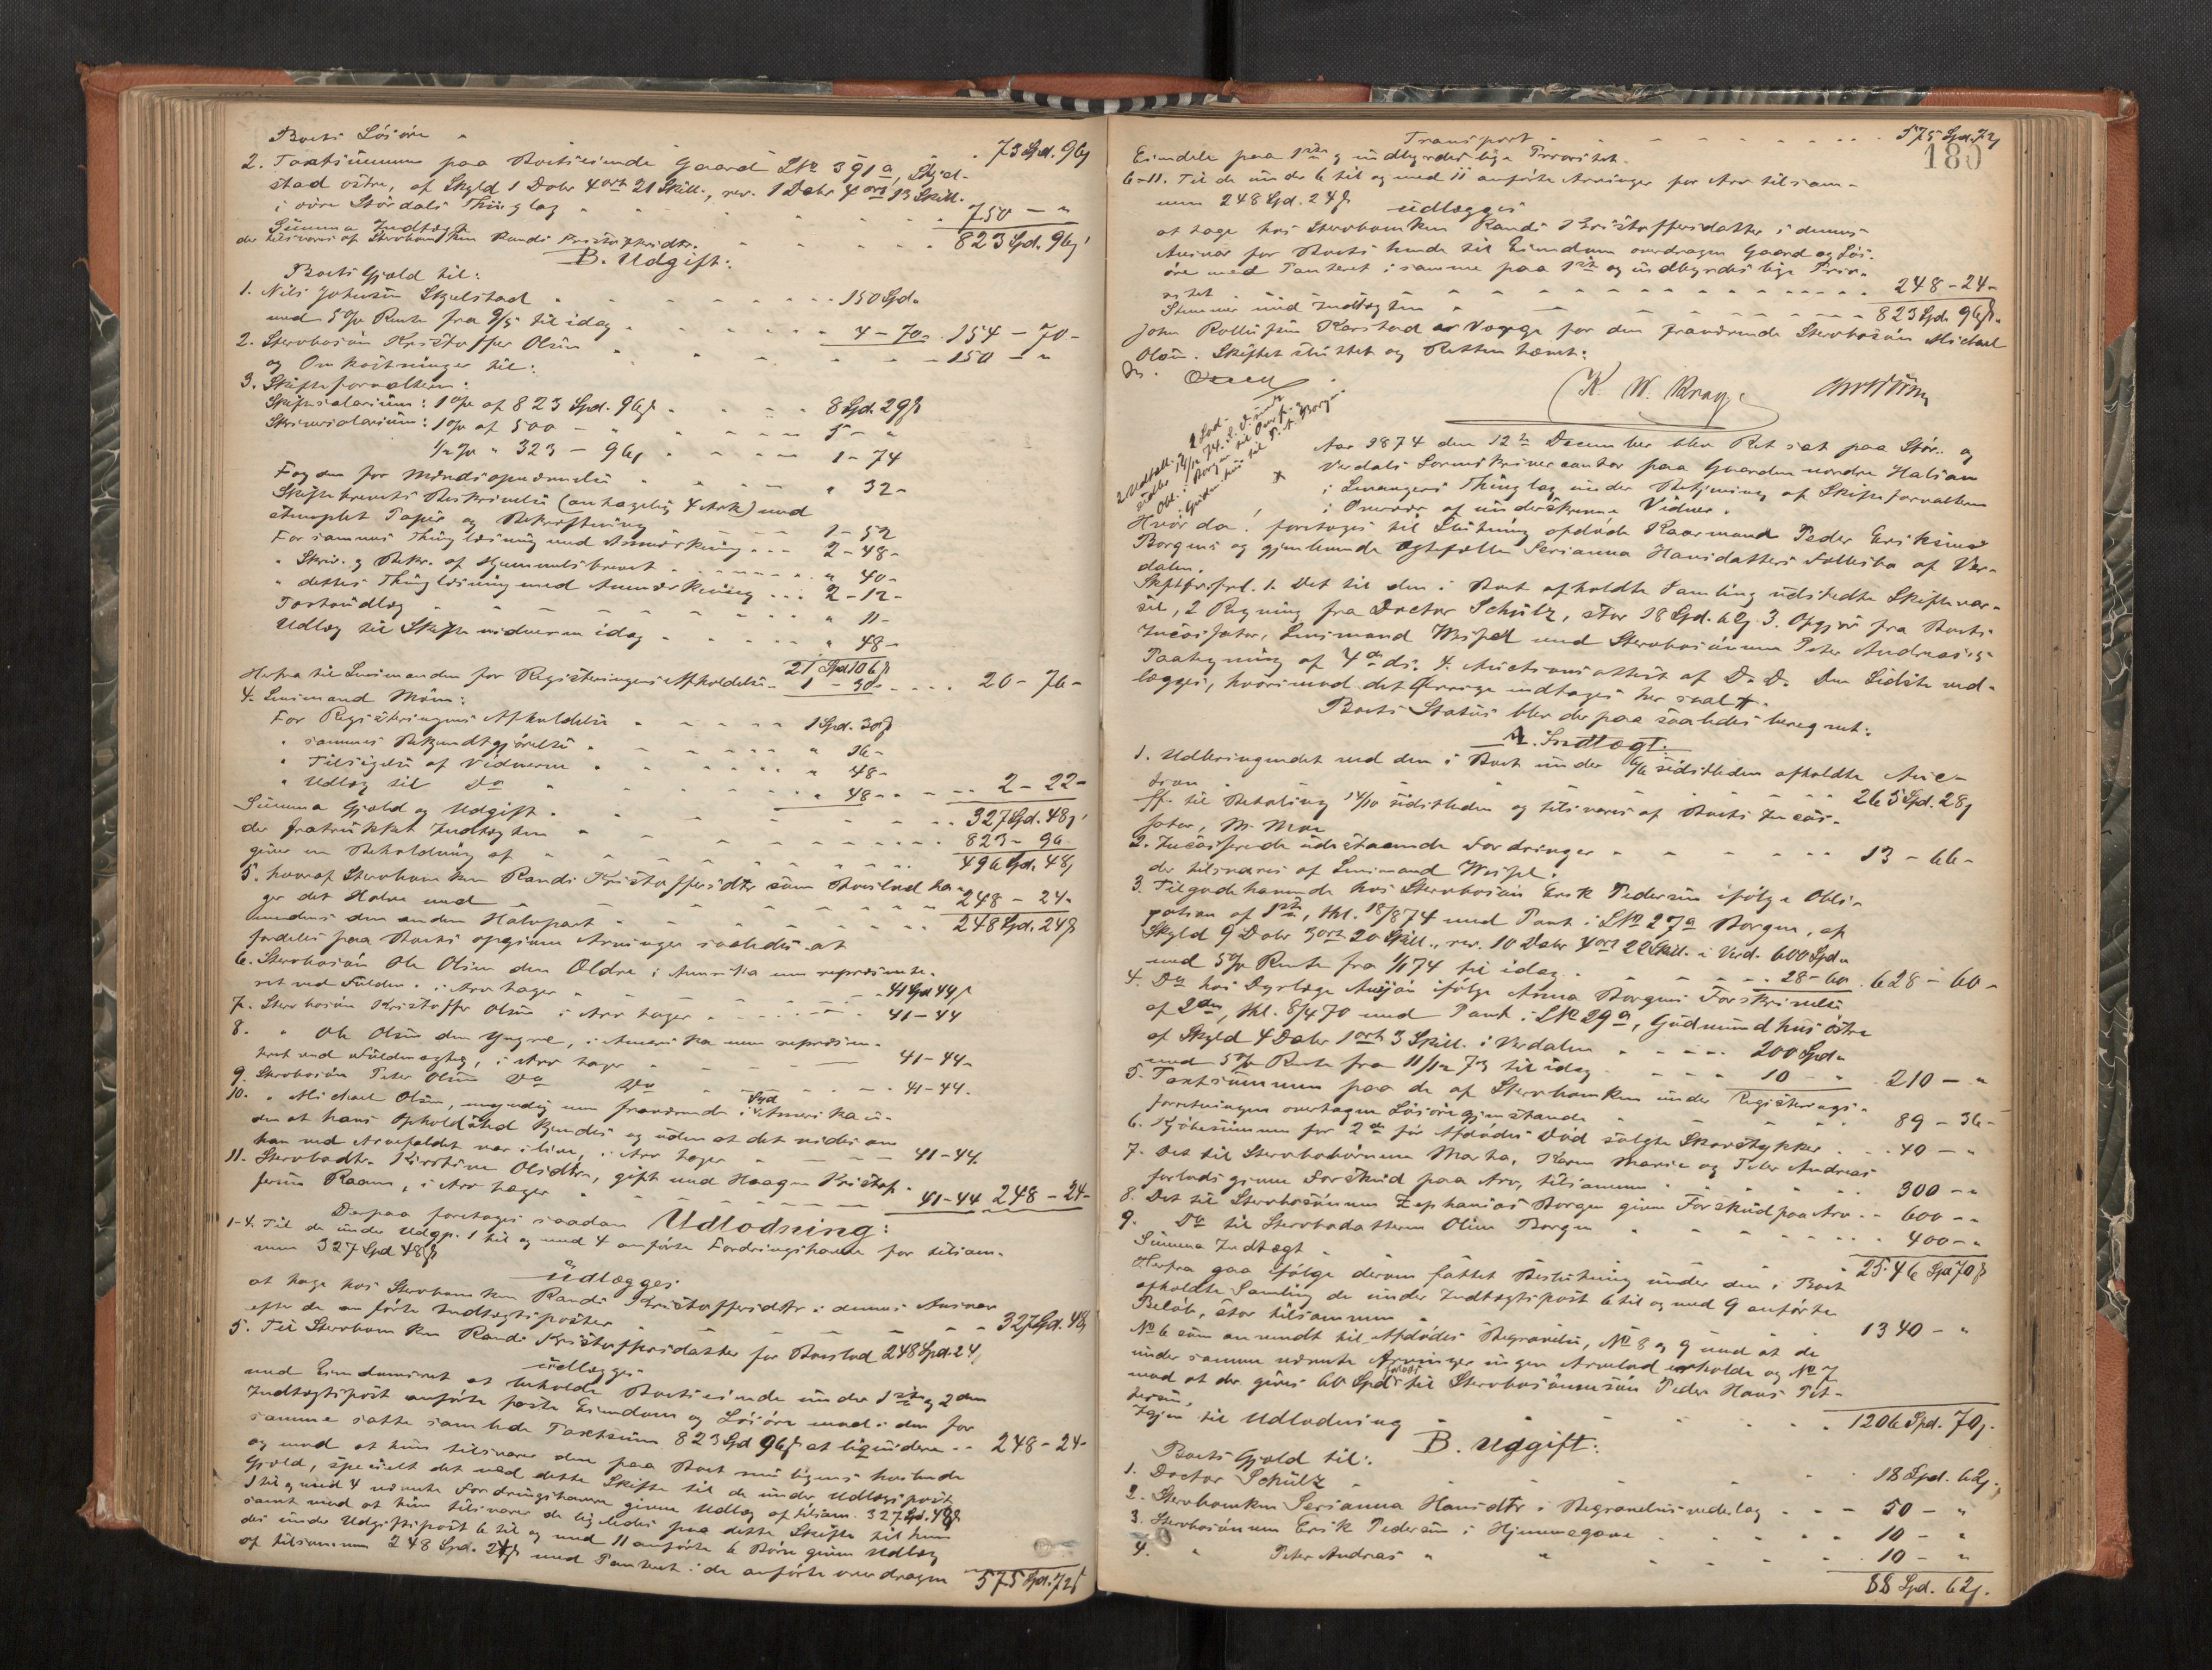 Boets Løsøre - 73 Spd. 96ß
2. Taxtsummen paa Boets eiende Gaard LNo 391a, Skjel-
stad østre, af Skyld 1 Daler 4 ort 21 Skill., rev. 1 Daler 4 ort 13 Skill.
i øvre Størdals Thinglag - - - 750 - "
Summa Indtægt - - - 823 Spd. 96ß
der tilsvares af Stervboenken Randi Kristoffersdtr.
B. Udgift:
Boets Gjæld til:
1. Nils Johnsen Skjelstad - - - 150 Spd.
med 5% Rente fra 9/5 til idag - - - 4 - 70 - 154 - 70 -
2. Stervbosøn Kristoffer Olsen - - - 150 - "
og Omkostninger til:
3. Skifteforvalteren:
Skiftesalarium: 1% af 823 Spd. 96ß - - - 8 Spd. 29ß
Skriversalarium: 1% af 500 - " - - - 5 - "
½% " 323 - 96ß - - - 1 - 74
Fogden for Mændsopnævnelse - - - " 32 -
Skiftebrevets Beskrivelse (antagelig 4 Ark) med
stemplet Papir og Bekræftning - - - 1 - 52
For sammes Thinglæsning med Anmærkning - - - 2 - 48 -
" Skriv. og Bekr. af Hjemmelsbrevet - - - " 40 -
" dettes Thinglæsning med Anmærkning - - - 2 - 12 -
Portoudlæg - - - " 11 -
Udlæg til Skiftevidnerne idag - - - " 48 -
21 Spd 106ß
Herfra til Lensmanden for Registreringens Afholdelse - 1 - 30 - - - 20 - 76 -
4. Lensmand Moum:
For Registreringens Afholdelse - - - 1 Spd. 30ß
" sammes Bekjendtgjørelse - - - " 16 -
" Tilsigelse af Vidnerne - - - " 48 -
" Udlæg til Do - - - " 48 - - - 2 - 22 -
Summa Gjæld og Udgift - - - 327 Spd. 48ß
der fratrukket Indtægten - - - 823 - 96
giver en Beholdning af - - - 496 Spd. 48ß
5. hvoraf Stervboenken Randi Kristoffersdtr som Boeslod ta-
ger det Halve med - - - 248 - 24 -
medens den anden Halvpart - - - 248 Spd. 24ß
fordeles paa Boets opgivne Arvinger saaledes at
6. Stervbosøn Ole Olsen den Ældre i Amerika men repræsente-
ret ved Fuldm. i Arv tager - - - 41 Spd 44ß
7. Stervbosøn Kristoffer Olsen i Arv tager - - - 41 - 44
8. " Ole Olsen den Yngre, i Amerika men repræsen-
teret ved Fuldmægtig, i Arv tager - - - 41 - 44 -
9. Stervbosøn Peter Olsen Do Do - - - 41 - 44 -
10. " Michael Olsen, myndig men fraværende i Syd Amerika u-
den at hans Opholdsted kjendes og uden at det vides om
han ved Arvefaldet var i live, i Arv tager - - - 41 - 44.
11. Stervbodtr. Kirstine Olsdtr., gift med Haagen Kristof-
fersen Raaen, i Arv tager - - - 41 - 44 248 - 24 -
Derpaa foretoges saadan Udlodning:
1-4. Til de under Udgp. 1 til og med 4 anførte Fordringshavere for tilsam-
men 327 Spd 48ß
udlægges
at tage hos Stervboenken Randi Kristoffersdtr i dennes Ansvar
efter de anførte Indtægtsposter - - - 327 Spd. 48ß
5. Til Stervboenken Randi Kristoffersdatter for Boeslod 248 Spd. 24ß
udlægges
med Eiendomsret at beholde Boets eiende under 1ste og 2den
Indtægtspost anførte faste Eiendom og Løsøre mod i den for
samme satte samlede Taxtsum 823 Spd 96ß at liqvidere - - 248 - 24 -
og mod at hun tilsvarer den paa Boet muligens heftende
Gjæld, specielt det ved dette Skifte til de under Udlægspost
1 til og med 4 nævnte Fordringshavere givne Udlæg af tilsam. 327 Spd. 48ß
samt mod at hun tilsvarer de ligeledes paa dette Skifte til hen-
des under Udgiftspost 6 til og med 11 anførte 6 Børn givne Udlæg
af tilsammen 248 Spd. 24ß med Panteret i de anførte overdragne
575 Spd. 72ß
Transport - - - 575 Spd. 72ß
180
Eiendele paa 1ste og indbyrdes lige Prioritet.
6-11. Til de under 6 til og med 11 anførte Arvinger for Arv tilsam-
men 248 Spd. 24ß udlægges
at tage hos Stervboenken Randi Kristoffersdatter i dennes
Ansvar for Boets hende til Eiendom overdragne Gaard og Løs-
øre med Panteret i samme paa 1ste og indbyrdes lige Prio-
ritet - - - 248 - 24 -
Stemmer med Indtægten - - - 823 Spd. 96ß.
John Rollufsen Karstad er Værge for den fraværende Stervbosøn Michael
Olsen. Skiftet sluttet og Retten hævet.
K. W. Krag
Aar 1874 den 12te December blev Ret sat paa Stør- og
Verdals Sorenskrivercontor paa Gaarden nordre Halsan
i Levangers Thinglag under Betjening af Skifteforvalteren
i Overvær af underskrevne Vidner.
Hvorda: foretoges til Slutning afdøde Kaarmand Peder Eriksens
Borgens og gjenlevende Ægtefælle Serianna Hansdatters Fællesbo af Ver-
dalen.
Skftfv. frl. 1. Det til den i Boet afholdte Samling udstedte Skiftevar-
sel, 2 Regning fra Doctor Schulz, stor 18 Spd. 62ß 3. Opgjør fra Boets
Incassator, Lensmand Wessel med Stervbosønnen Peter Andreas's
Paategning af 4de ds. 4. Auctionsattest af D. D. Den Sidste ved-
lægges, hvorimod det Øvrige indtages her saal. #.
Boets Status blev derpaa saaledes beregnet:
A. Indtægt:
1. Udbringendet ved den i Boet under 6/6 sidstleden afholdte Auc-
tion - - - 265 Spd. 28ß
ff. til Betaling 14/10 sidstleden og tilsvares af Boets Incas-
sator, M. Moe
2. Incasserede udestaaende Fordringer - - - 13 - 66 -
der tilsvares af Lensmand Wessel.
3. Tilgodehavende hos Stervbosøn Erik Pedersen ifølge Obli-
gation af 1ste, thl. 18/8 74 med Pant i LNo 27a Borgen, af
Skyld 9 Daler 3 ort 20 Skill., rev. 10 Daler 4 ort 22 Skill. i Verd. 600 Spd.
med 5% Rente fra 1/1 74 til idag - - - 28 - 60 628 - 60 -
4. Do hos Dyrlæge Ausjøn ifølge Anna Borgens Forskrivelse
af 2den, thl. 8/4 70 med Pant i LNo 29a, Gudmundhus østre
af Skyld 4 Daler 1 ort 3 Skill. i Verdalen - - - 200 Spd.
med 5% Rente fra 11/12 73 til idag - - - 10 - " 210 - "
5. Taxtsummen paa de af Stervboenken under Registrerings-
forretningen overtagne Løsøregjenstande - - - 89 - 36 -
6. Kjøbesummen for 2de før Afdødes Død solgte Skovstykker - - - 40 - "
7. Det til Stervbobørnene Marta, Karen Marie og Peter Andreas
forlods givne Forskud paa Arv, tilsammen - - - 300 - "
8. Det til Stervbosønnen Zephanias Borgen givne Forskud paa Arv - - 600 - "
9. Do til Stervbodatteren Oline Borgen - - - 400 - "
Summa Indtægt - - - 2546 Spd 70ß
Herfra gaa ifølge derom fattet Beslutning under den i Boet
afholdte Samling de under Indtægtspost 6 til og med 9 anførte
Beløb, stor tilsammen - - - 1340 - "
No 6 som anvendt til Afdødes Begravelse, No 8 og 9 mod at de
under samme nævnte Arvinger ingen Arvelod erholde og No 7
mod at der gives 60 Spd. forlods til Stervbosønnesøn Peder Hans Pet-
tersen.
Igjen til Udlodning - - - 1206 Spd. 70ß.
B. Udgift:
Boets Gjæld til:
1. Doctor Schulz - - - 18 Spd. 62ß
2. Stervboenken Serianna Hansdtr i Begravelsesvederlag - - - 50 - "
3. Stervbosønnen Erik Pedersen i Hjemmegave - - - 10 - "
4. " Peter Andreas " " - - - 10 - "
88 Spd. 62ß.